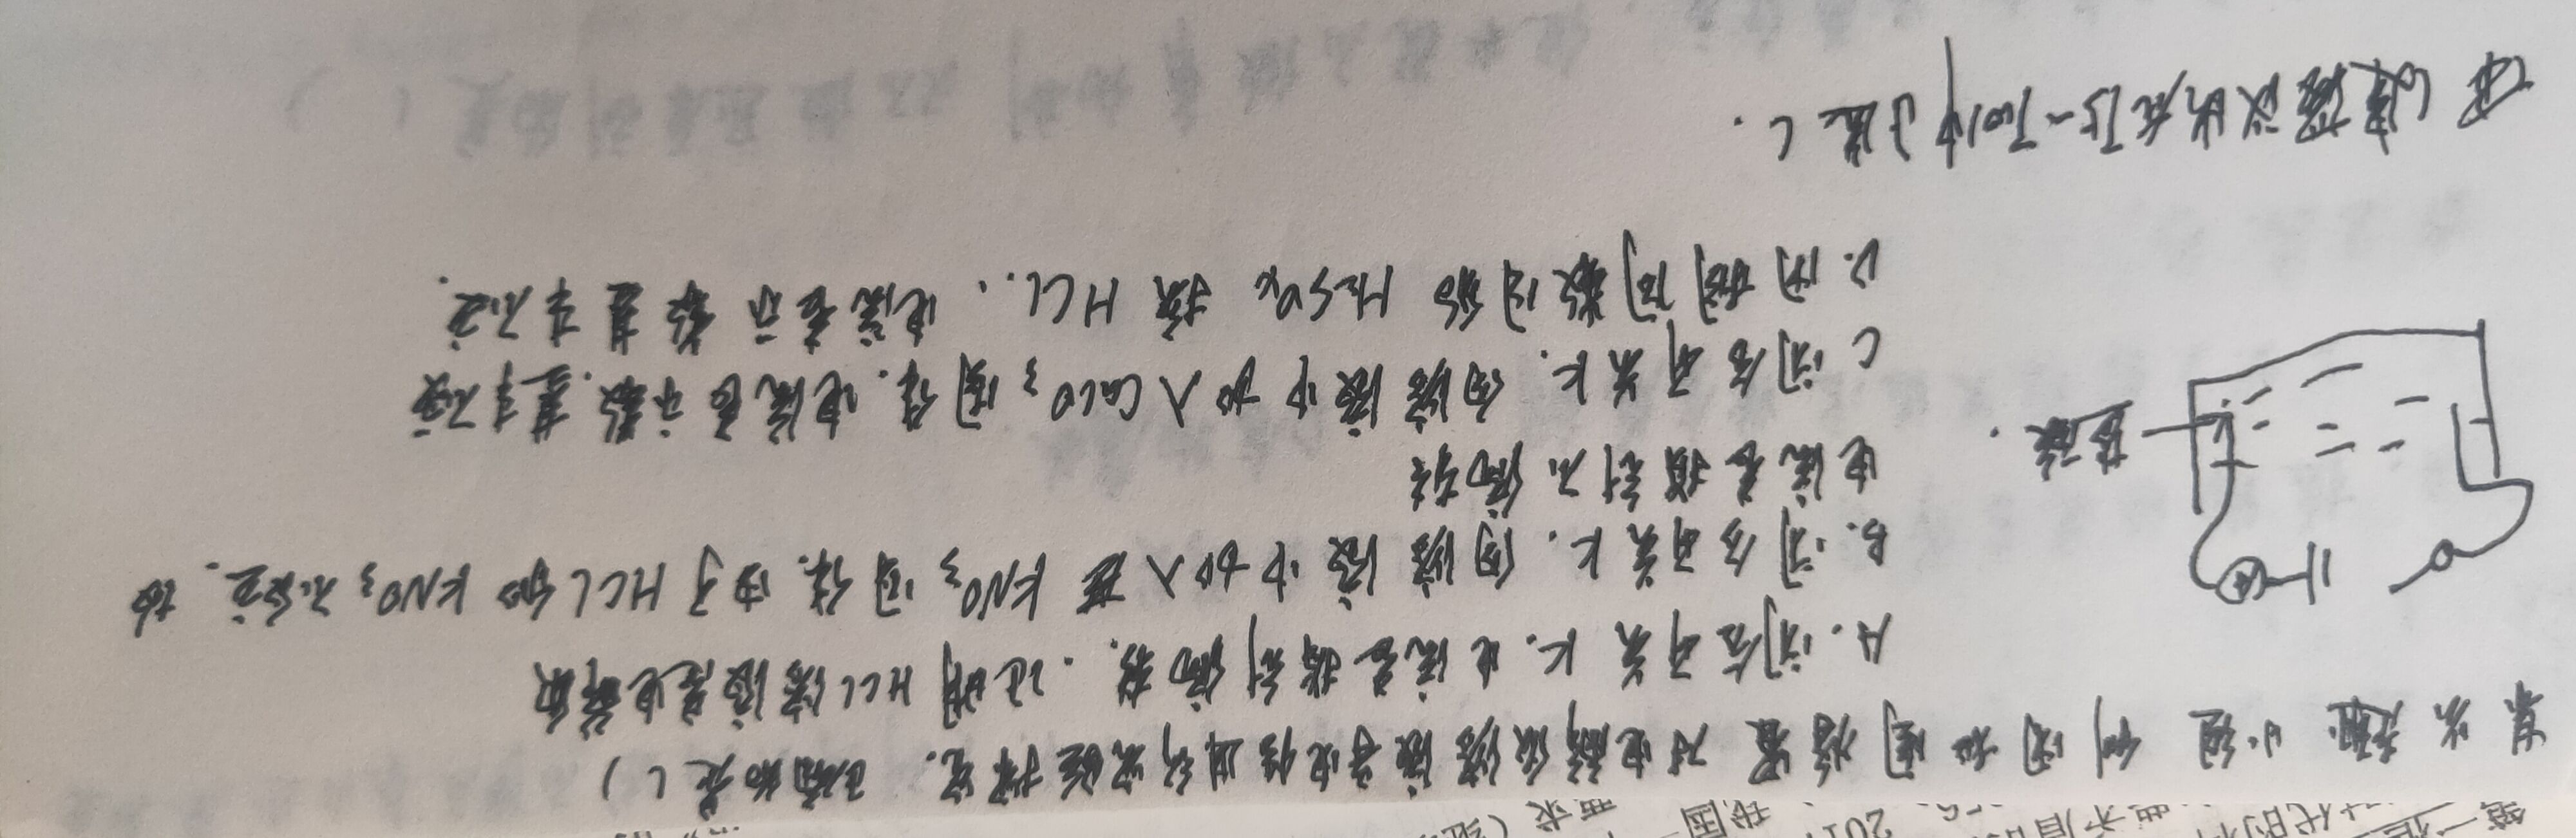 第二
时代的
矛盾
201
我国
要求(继
某兴趣小组利用如图装置对电解质溶液导电性进行实验探究. 正确的是( )
A. 闭合开关K. 电流表指针偏转. 证明HCl溶液是电解质
B. 闭合开关K. 向溶液中加入 KNO₃固体. 由于HCl和KNO₃不反应. 故
电流表指针不偏转
盐酸.
C 闭合开关K. 向溶液中加入CaCO₃固体. 电流表示数.基本不变
D. 用相同数目的 H₂SO₄ 换 HCl.. 电流表示数基本不变.
议出在
选C.